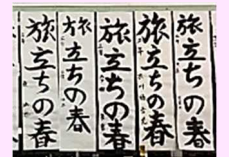 旅立ちの春
旅立ちの春
旅立ちの春
旅立ちの春
旅立ちの春